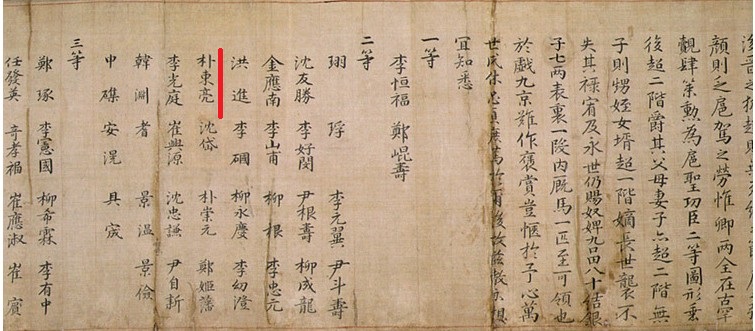 顔則乏扈駕之勞惟卿兩全在古罕
覿肆策勳為扈聖功臣二等圖形垂
後超二階爵其父母妻子亦超二階無
子則甥姪女壻超一階嫡長世襲不
失其祿宥及永世仍賜奴婢九口田八十結銀
子七兩表裏一段內厩馬一匹至可領也
於戲九京難作褒賞豈愜於予心萬
世咸休忠貞庶篤於爾後故玆敎示想
宜知悉
一等
李恒福 鄭崐壽
二等
珝 琈 李元翼 尹斗壽
沈友勝 李好閔 尹根壽 柳成龍
金應南 李山甫 柳根 李忠元
洪進 李 柳永慶 李幼澄
朴東亮 沈岱 朴崇元 鄭姬藩
李光庭 崔興源 沈忠謙 尹自新
韓淵 耆 景溫 景儉
申磼 安滉 具宬
三等
鄭琢 李憲國 柳希霖 李有中
任發英 奇孝福 崔應淑 崔賓